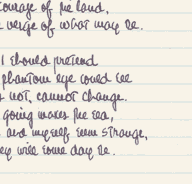 courage of the land,
verge of what may be.
I should pretend
phantom eye could see
not, cannot change.
going makes the sea,
and myself seem strange,
will some day be.